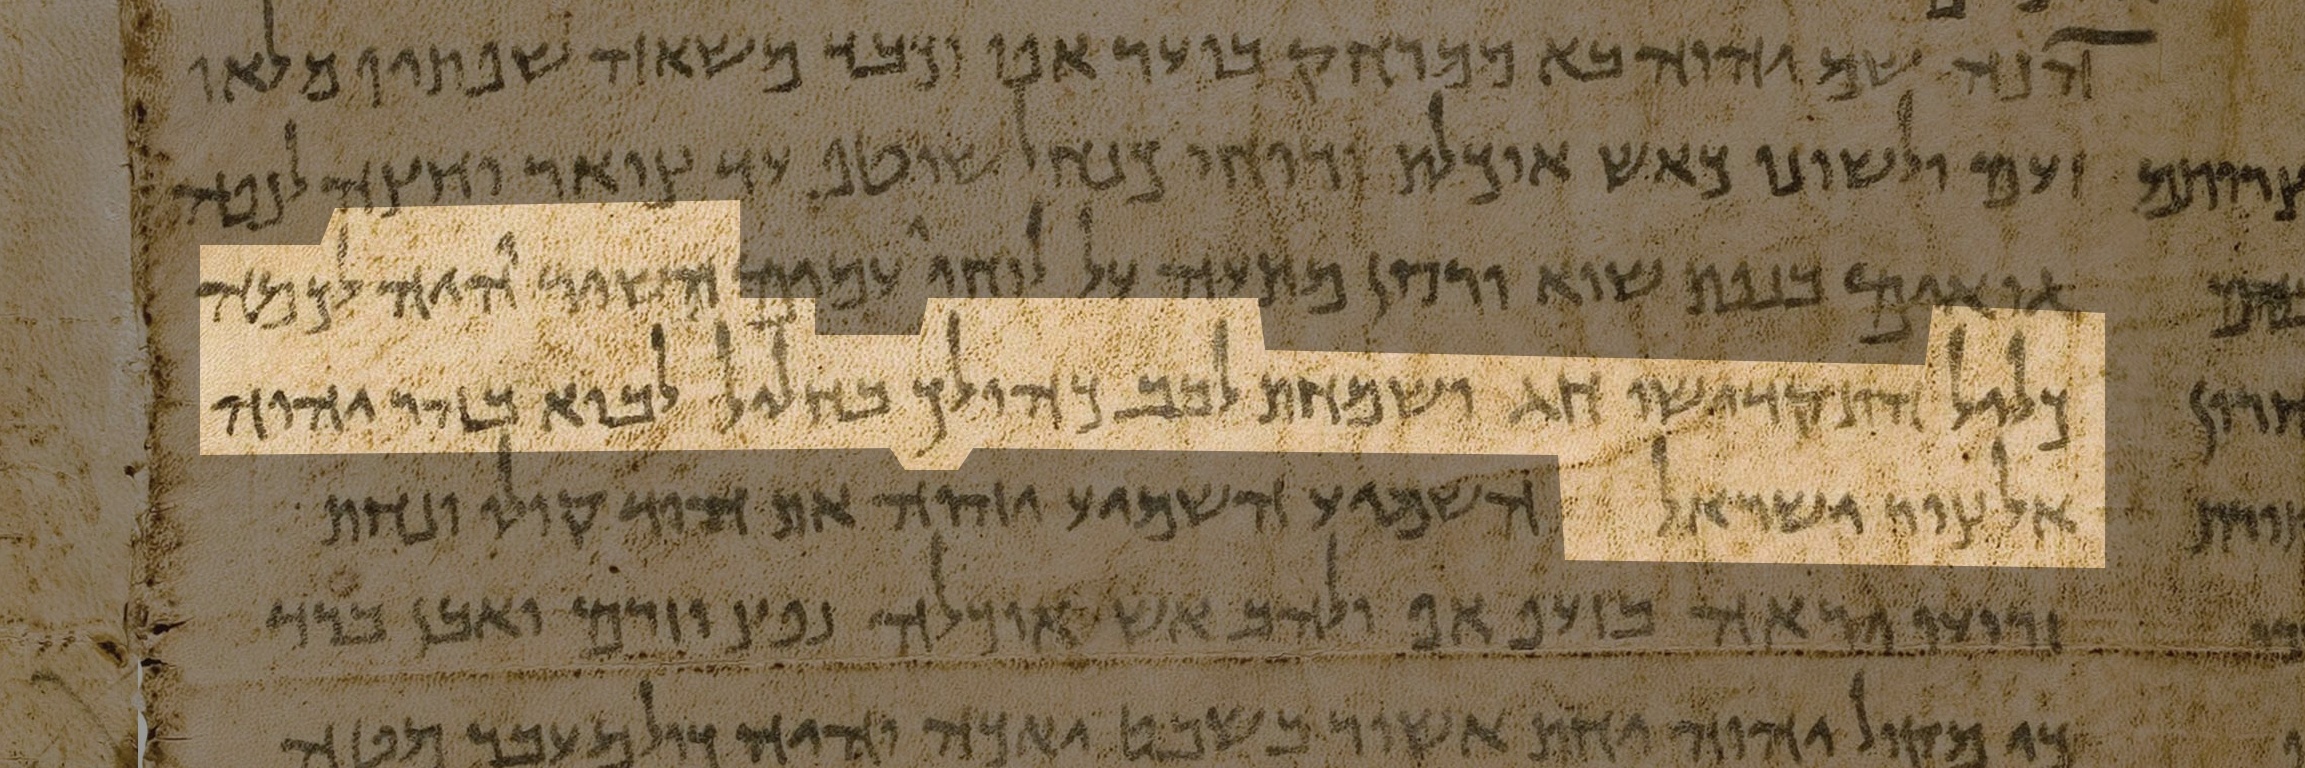 הנה שם יהוה בא ממרחק בוער אפו וכבד משאה שפתיו מלאו
זעם ולשונו כאש אוכלת ורוחו כנחל שוטף עד צואר וחצה לנפה
גואים בנפת שוא ורסן מתעה על לוחיי עמים השיר יהיה לכמה
כליל התקדישו חג ושמחת לבב כהולך בחליל לבוא בהר יהוה
אל צור ישראל השמיע השמיע יהוה את הוד קולו ונחת
זרועו יראה בזעף אף ולהב אש אוכלה נפץ וזרם ואבן ברד
כי מקול יהוה יחת אשור בשבט יאכה והיה כול מעבר מטה